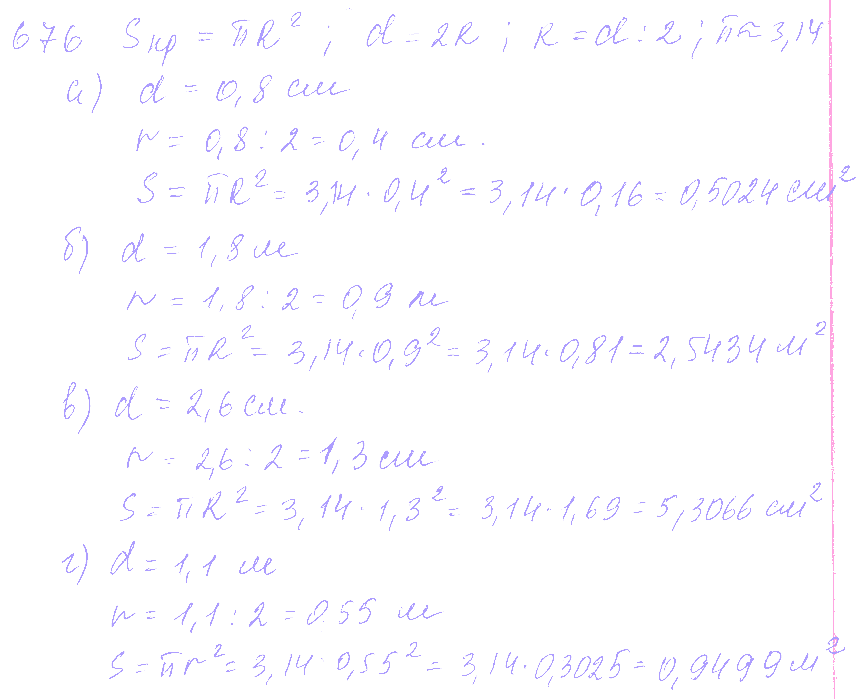 676 Sкр = πR² ; d = 2R ; R = d : 2 ; π ≈ 3,14
а) d = 0,8 см
r = 0,8 : 2 = 0,4 см.
S = πR² = 3,14 · 0,4² = 3,14 · 0,16 = 0,5024 см²
б) d = 1,8 м
r = 1,8 : 2 = 0,9 м
S = πR² = 3,14 · 0,9² = 3,14 · 0,81 = 2,5434 м²
в) d = 2,6 см.
r = 2,6 : 2 = 1,3 см
S = πR² = 3,14 · 1,3² = 3,14 · 1,69 = 5,3066 см²
г) d = 1,1 м
r = 1,1 : 2 = 0.55 м
S = πr² = 3,14 · 0,55² = 3,14 · 0,3025 = 0,9499 м²